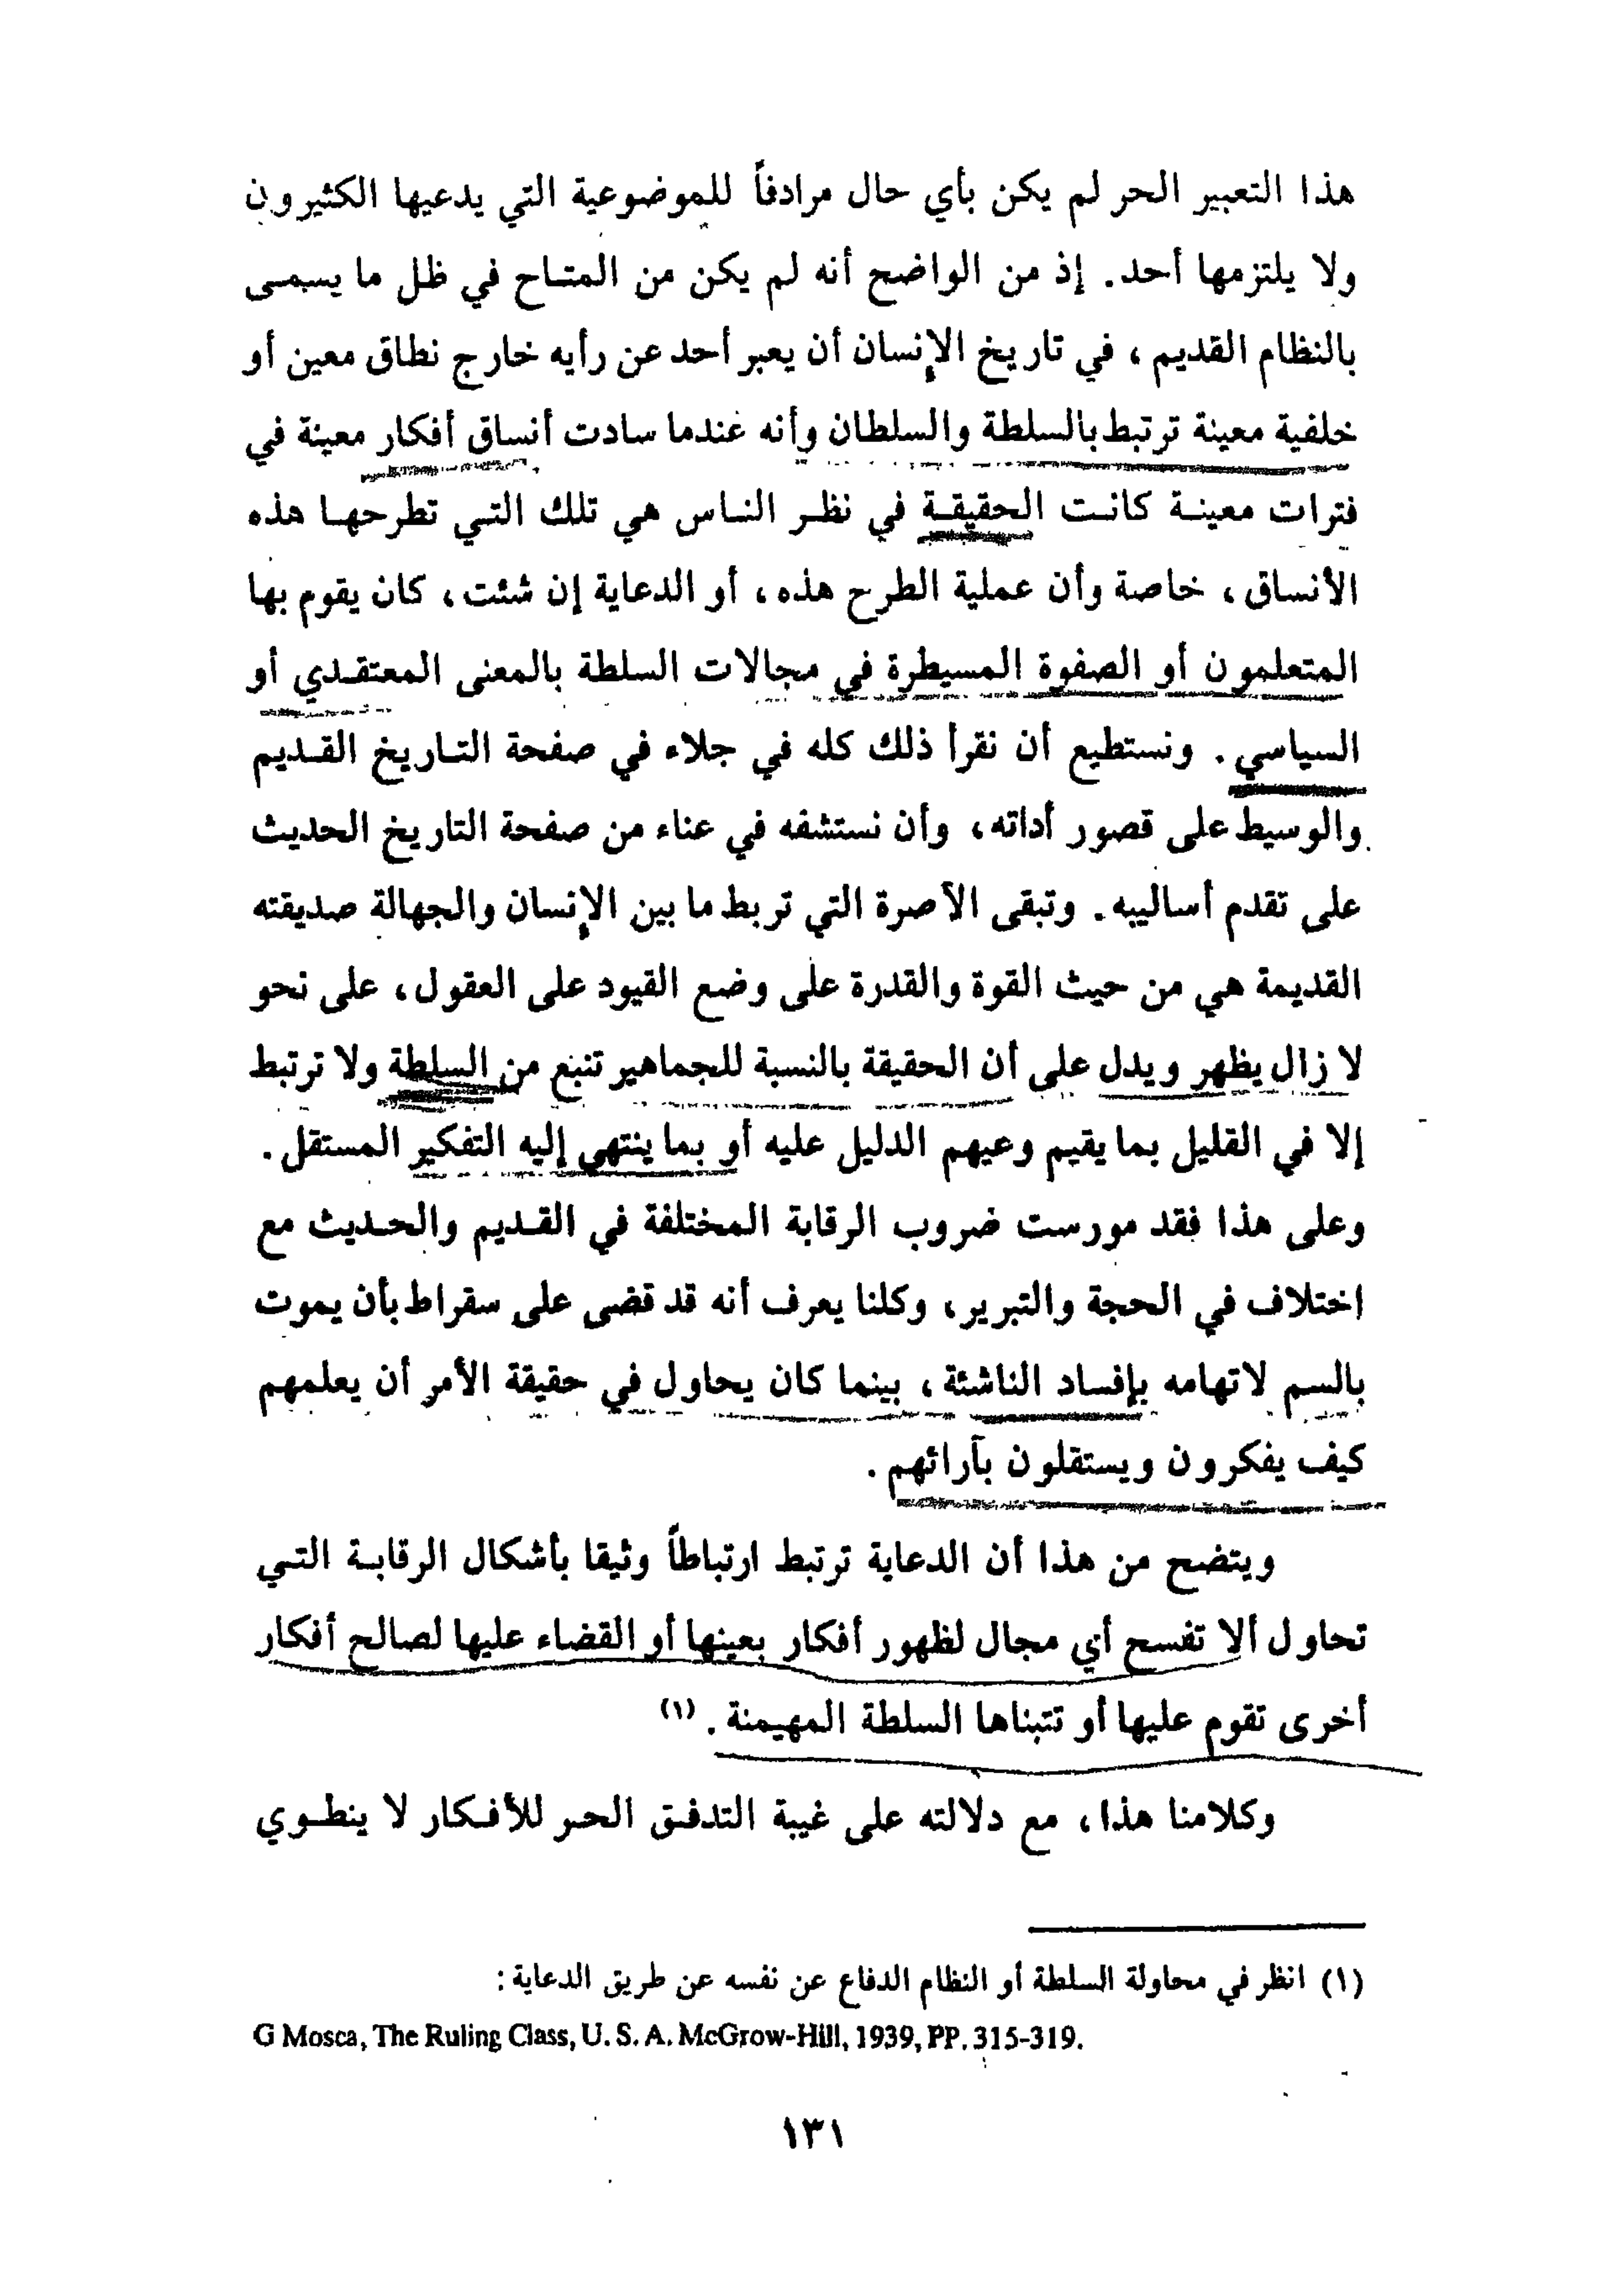 هذا التعبير الحر لم يكن بأي حال مرادفاً للموضوعية التي يدعيها الكثيرون
ولا يلتزمها أحد. إذ من الواضح أنه لم يكن من المتاح في ظل ما يسمى
بالنظام القديم، في تاريخ الإنسان أن يعبر أحد عن رأيه خارج نطاق معين أو
خلفية معينة ترتبط بالسلطة والسلطان وأنه عندما سادت أنساق أفكار معينة في
فترات معينة كانت الحقيقة في نظر الناس هي تلك التي تطرحها هذه
الأنساق، خاصة وأن عملية الطرح هذه، أو الدعاية إن شئت، كان يقوم بها
المتعلمون أو الصفوة المسيطرة في مجالات السلطة بالمعنى المعتقدي أو
السياسي. ونستطيع أن نقرأ ذلك كله في جلاء في صفحة التاريخ القديم
والوسيط على قصور أداته، وأن نستشفه في عناء من صفحة التاريخ الحديث
على تقدم أساليبه. وتبقى الآصرة التي تربط ما بين الإنسان والجهالة صديقته
القديمة هي من حيث القوة والقدرة على وضع القيود على العقول، على نحو
لا زال يظهر ويدل على أن الحقيقة بالنسبة للجماهير تنبع من السلطة ولا ترتبط
إلا في القليل بما يقيم وعيهم الدليل عليه أو بما ينتهي إليه التفكير المستقل.
وعلى هذا فقد مورست ضروب الرقابة المختلفة في القديم والحديث مع
اختلاف في الحجة والتبرير، وكلنا يعرف أنه قد قضى على سقراط بأن يموت
بالسم لاتهامه بإفساد الناشئة، بينما كان يحاول في حقيقة الأمر أن يعلمهم
كيف يفكرون ويستقلون بآرائهم.
ويتضح من هذا أن الدعاية ترتبط ارتباطاً وثيقا بأشكال الرقابة التي
تحاول ألا تفسح أي مجال لظهور أفكار بعينها أو القضاء عليها لصالح أفكار
أخرى تقوم عليها أو تتبناها السلطة المهيمنة. (١)
وكلامنا هذا، مع دلالته على غيبة التدفق الحر للأفكار لا ينطوي
(١) انظر في محاولة السلطة أو النظام الدفاع عن نفسه عن طريق الدعاية:
G Mosca, The Ruling Class, U. S. A. McGrow-Hill, 1939, PP. 315-319.
١٣١